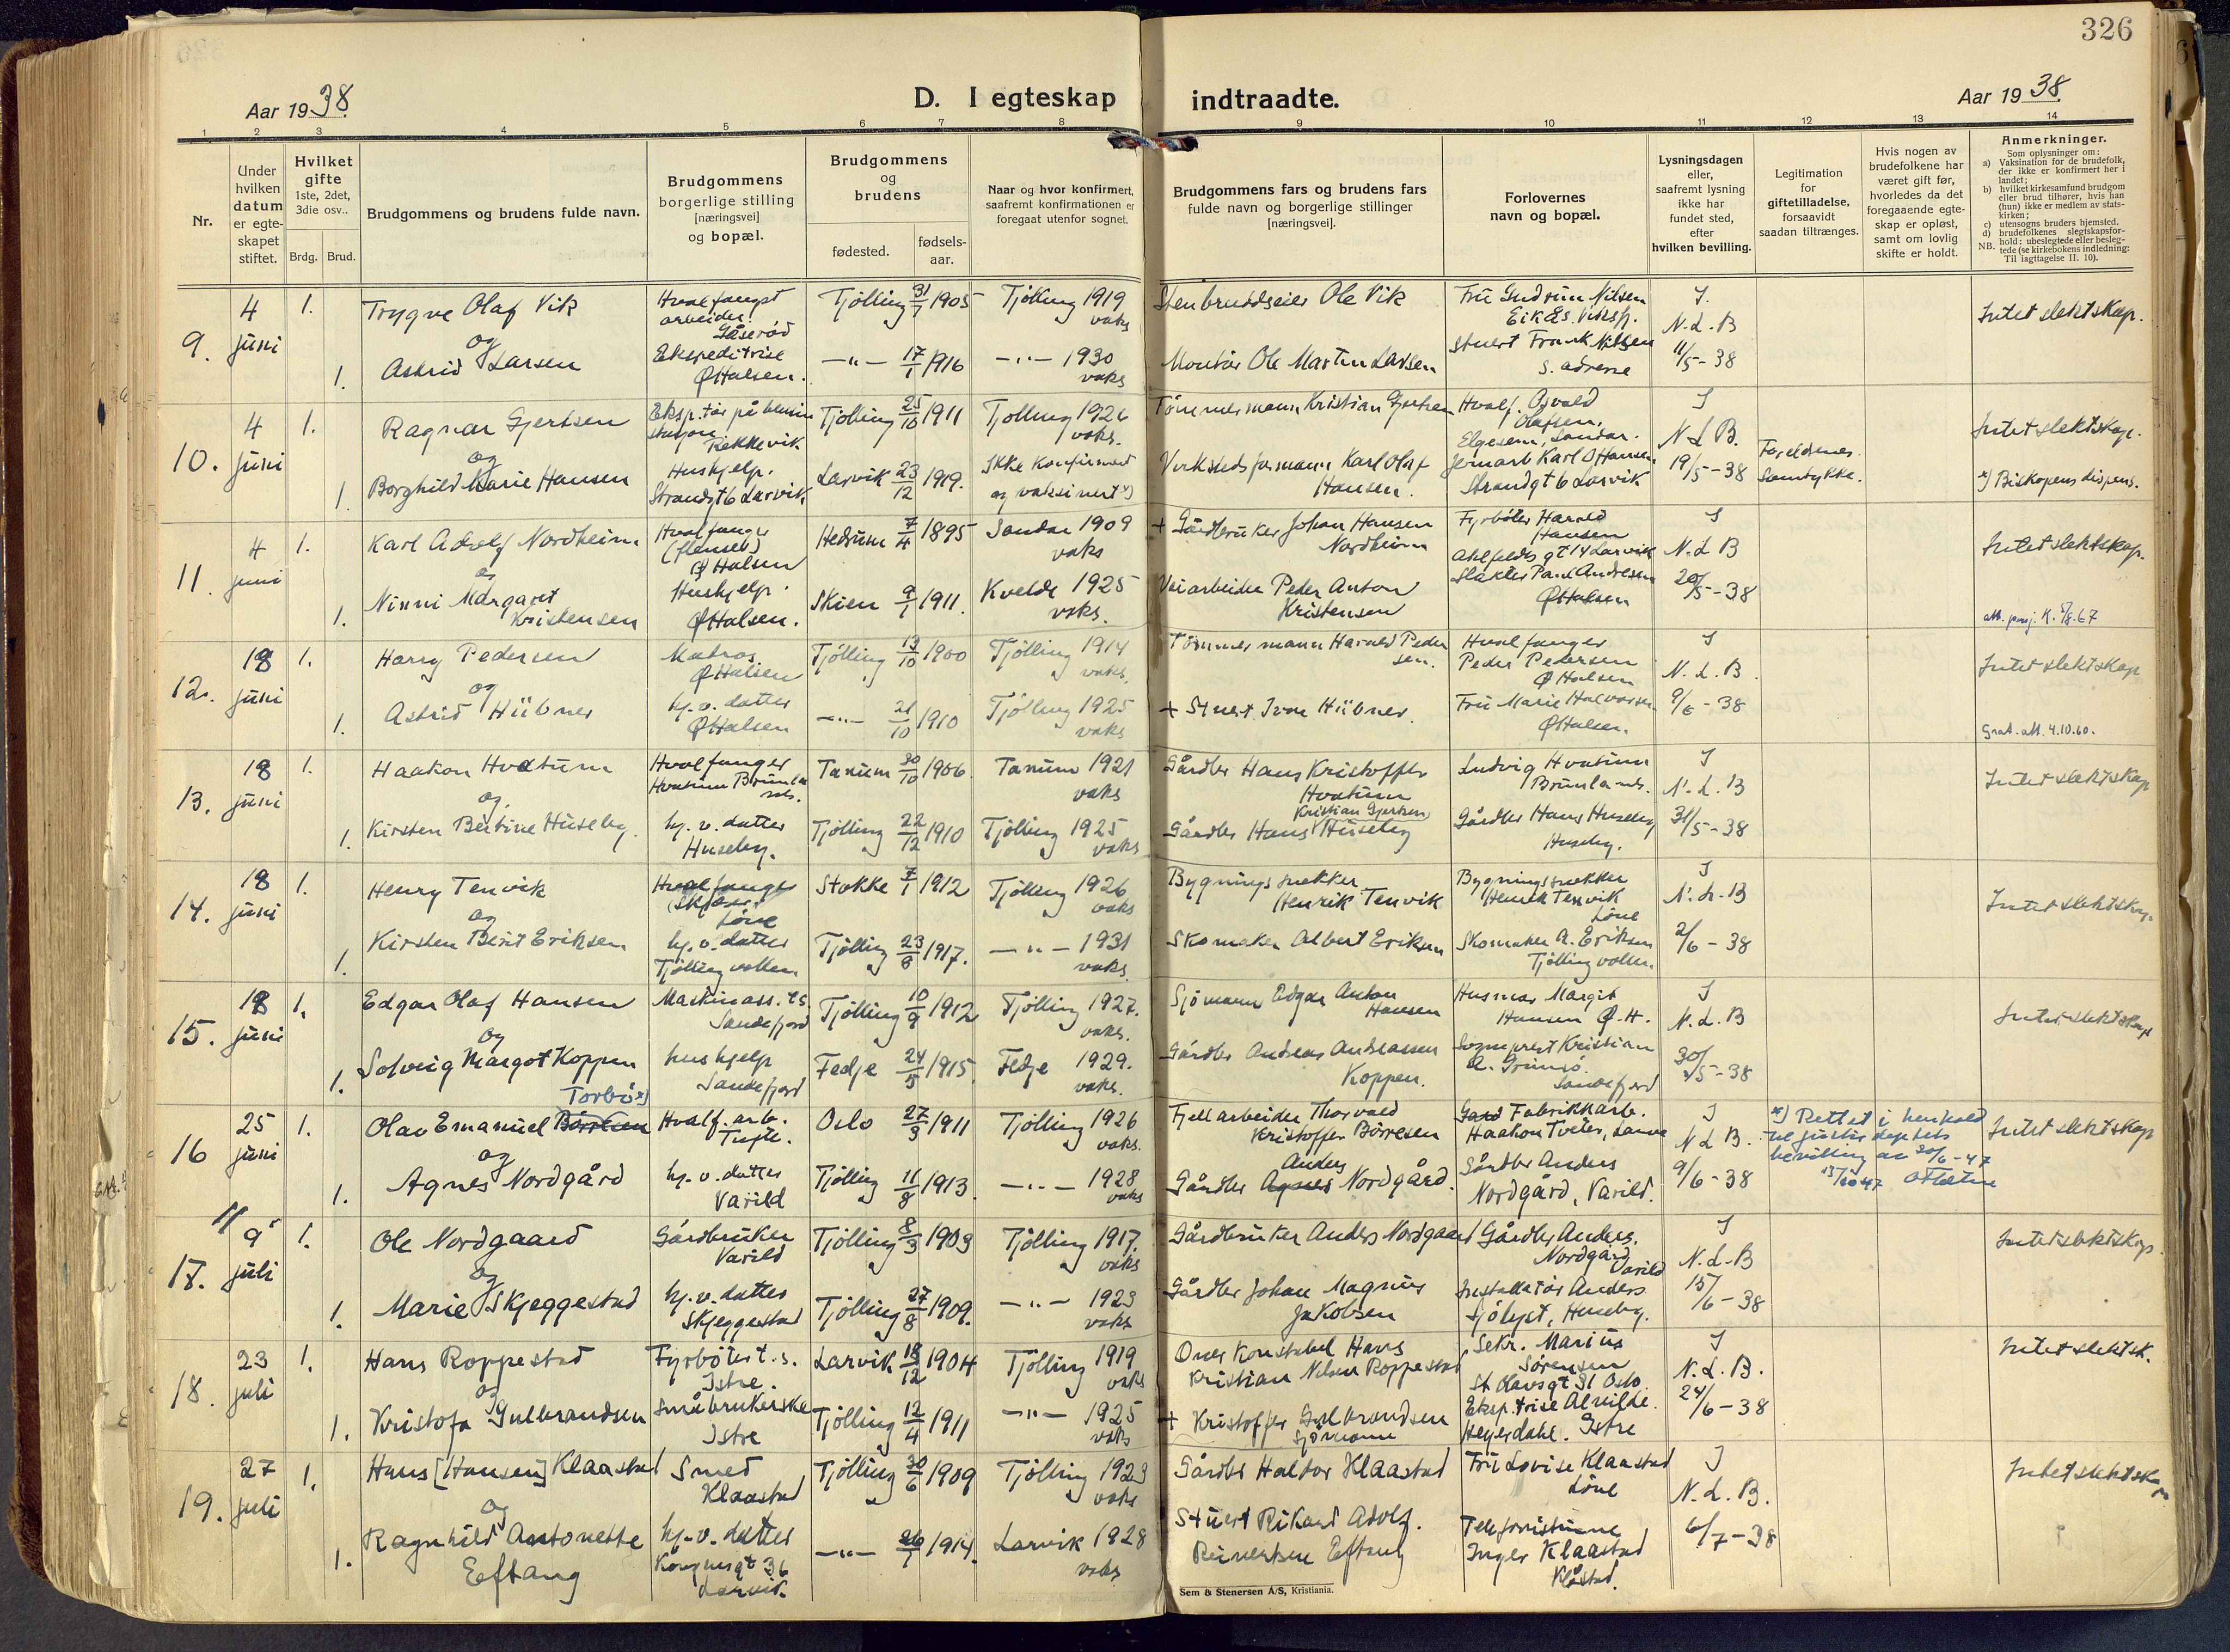 326
Aar 1938.
D. I egteskap indtraadte.
Aar 1938.
1 2 3 4 5 6 7 8 9 10 11 12 13 14
Nr.
Under
hvilken
datum
er egte-
skapet
stiftet.
Hvilket
gifte
1ste, 2det,
3die osv..
Brdg. Brud.
Brudgommens og brudens fulde navn.
Brudgommens
borgerlige stilling
[næringsvei]
og bopæl.
Brudgommens
og
brudens
fødested.
fødsels-
aar.
Naar og hvor konfirmert,
saafremt konfirmationen er
foregaat utenfor sognet.
Brudgommens fars og brudens fars
fulde navn og borgerlige stillinger
[næringsvei].
Forlovernes
navn og bopæl.
Lysningsdagen
eller,
saafremt lysning
ikke har
fundet sted,
efter
hvilken bevilling.
Legitimation
for
giftetilladelse,
forsaavidt
saadan tiltrænges.
Hvis nogen av
brudefolkene har
været gift før,
hvorledes da det
foregaaende egte-
skap er opløst,
samt om lovlig
skifte er holdt.
Anmerkninger.
Som oplysninger om:
a) Vaksination for de brudefolk,
der ikke er konfirmert her i
landet;
b) hvilket kirkesamfund brudgom
eller brud tilhører, hvis han
(hun) ikke er medlem av stats-
kirken;
c) utensogns bruders hjemsted.
d) brudefolkenes slegtskapsfor-
hold: ubeslegtede eller besleg-
NB. tede (se kirkebokens indledning:
Til iagttagelse II. 10).
9. 4 juni 1.
Trygve Olaf Vik
Hvalfangst
arbeider.
Gåserød
Tjølling 31/7 1905
Tjølling 1919
vaks
Stenbruddseier Ole Vik
Fru Gudrun Nilsen
J.
N.L.B
11/5-38
Intet slektskap.
og
1. Astrid Larsen
Ekspeditrise
Ø Halsen.
—"— 17/1 1916
—"— 1930
vaks
Montør Ole Martin Larsen
Stuert Frank Nilsen
s. adresse
10. 4 juni 1.
Ragnar Gjertsen
Eksp.tør på bensin
stasjon
Rekkevik
Tjølling 25/10 1911
Tjølling 1926
vaks.
Tømmermann Kristian Gjertsen
Hvalf. Osvald
Olafsen,
Elgesem, Sandar.
J
N L B.
19/5-38
Foreldrenes
Samtykke.
Intet slektskap.
og
1. Borghild Marie Hansen
Hushjelp.
Strandgt 6 Larvik
Larvik 23/12 1919.
Ikke konfirmert
og vaksinert x)
Verkstedsformann Karl Olaf
Hansen.
Jernarb Karl O Hansen
Strandgt 6 Larvik
x) Biskopens dispens.
11. 4 juni 1.
Karl Adolf Nordheim
Hvalfanger
(flenser)
Ø Halsen
Hedrum 7/4 1895
Sandar 1909
vaks
+ Gårdbruker Johan Hansen
Nordheim
Fyrbøter Harald
Hansen
Ahlefeldts gt 14 Larvik
J
N.L B
20/5-38
Intet slektskap.
og
1. Ninni Margaret
Kristensen
Hushjelp.
Ø Halsen.
Skien 9/1 1911.
Kvelde 1925
vaks.
Veiarbeider Peder Anton
Kristensen
Slakter Paul Andresen
Ø Halsen
12. 18 juni 1.
Harry Pedersen
Matros
Ø Halsen
Tjølling 13/10 1900
Tjølling 1914
vaks.
Tømmermann Harald Peder
sen.
Hvalfanger
Peder Pedersen
Ø Halsen
J
N.L.B.
9/6-38
Intet slektskap
og
1. Astrid Hübner
hj.v. datter
Ø Halsen
—"— 21/10 1910
Tjølling 1925
vaks
+ Stuert. Ivar Hübner.
Fru Marie Halvorsen
Ø Halsen.
Grat. att. 4.10.60.
13. 18 juni 1.
Haakon Hvatum
Hvalfanger
Hvatum Brunla
nes.
Tanum 30/10 1906.
Tanum 1921
vaks
Gårdbr Hans Kristoffer
Hvatum
Ludvig Hvatum
Brunlanes.
J
N.L.B
31/5-38
Intet slektskap
og.
1. Kirsten Bertine Huseby.
hj.v. datter
Huseby.
Tjølling 22/12 1910
Tjølling 1925
vaks
Kristian Gjertsen
Gårdbr Hans Huseby
Gårdbr Hans Huseby
Huseby.
14. 18 juni 1.
Henry Tenvik
Hvalfanger
Løve
Stokke 7/1 1912
Tjølling 1926
vaks
Bygningssnekker
Henrik Tenvik
Bygningssnekker
Henrik Tenvik
Løve
J
N.L.B
2/6-38
Intet slektskap.
og
1. Kirsten Berit Eriksen
hj.v. datter
Tjøllingvollen
Tjølling 23/8 1917.
—"— 1931
vaks.
Skomaker Albert Eriksen
Skomaker A. Eriksen
Tjøllingvollen.
15. 18 juni 1.
Edgar Olaf Hansen
Maskinass. t.s.
Sandefjord
Tjølling 10/9 1912
Tjølling 1927.
vaks.
Sjømann Edgar Anton
Hansen
Husmor Margit
Hansen Ø.H.
J
N.L.B
30/5-38
Intet slektskap
og
1. Solveig Margot Koppen
hushjelp
Sandefjord
Fedje 24/5 1915
Fedje 1929.
vaks.
Gårdbr Andreas Andreassen
Koppen.
Sogneprest Kristian
Sandefjord
16 25 juni 1.
Torbø x)
Olav Emanuel Børresen
Hvalf. arb.
Tufte.
Oslo 27/3 1911
Tjølling 1926
vaks.
Fjellarbeider Thorvald
Kristoffer Børresen
Fabrikkarb.
Haakon Tveter, Larvik
J
N L B.
9/6-38
x) Rettet i henhold
til justisdeptets
bevilling av 20/6-47
Intet slektskap
og
1. Agnes Nordgård
hj.v. datter
Varild
Tjølling 11/8 1913.
—"— 1928
vaks
Anders
Gårdbr Agnes Nordgård.
Gårdbr Anders
Nordgård, Varild.
17. 9 juli 1.
Ole Nordgaard
Gårdbruker
Varild
Tjølling 8/3 1903
Tjølling 1917.
vaks
Gårdbruker Anders Nordgaard
Gårdbr Anders.
Nordgård
Varild
J
N.L.B
15/6-38
Intet slektskap.
og
1. Marie Skjeggestad
hj.v. datter
Skjeggestad
Tjølling 27/8 1909.
—"— 1923
vaks
Gårdbr Johan Magnus
Jakobsen
Installatør Anders
Sjølyst, Huseby.
18. 23 juli 1.
Hans Roppestad
Fyrbøter t.s.
Istre.
Larvik 18/12 1904
Tjølling 1919
vaks
Overkonstabel Hans
Kristian Nilsen Roppestad
Sekr. Marius
Sørensen
St Olavsgt 31 Oslo
J
N.L.B.
24/6-38
Intet slektsk.
og
1. Kristofa Gulbrandsen
Småbrukerske
Istre
Tjølling 12/4 1911
—"— 1925
vaks
+ Kristoffer Gulbrandsen
Sjømann
Eksp.trise Alvilde
Heyerdahl. Istre
19. 27 juli 1.
Hans [Hansen] Klaastad
Smed
Klaastad
Tjølling 30/6 1909
Tjølling 1923
vaks
Gårdbr Halvor Klaastad
Fru Lovise Klaastad
Løve
J
N.L.B.
6/7-38
Intet slektskap
og
1. Ragnhild Antonette
Eftang
hj.v. datter
Kongensgt 36
Larvik.
—"— 26/1 1914.
Larvik 1928
vaks
Stuert Rikard Adolf.
Reinertsen Eftang
Telefonistinne
Inger Klaastad
Klåstad.
Sem & Stenersen A/S, Kristiania.